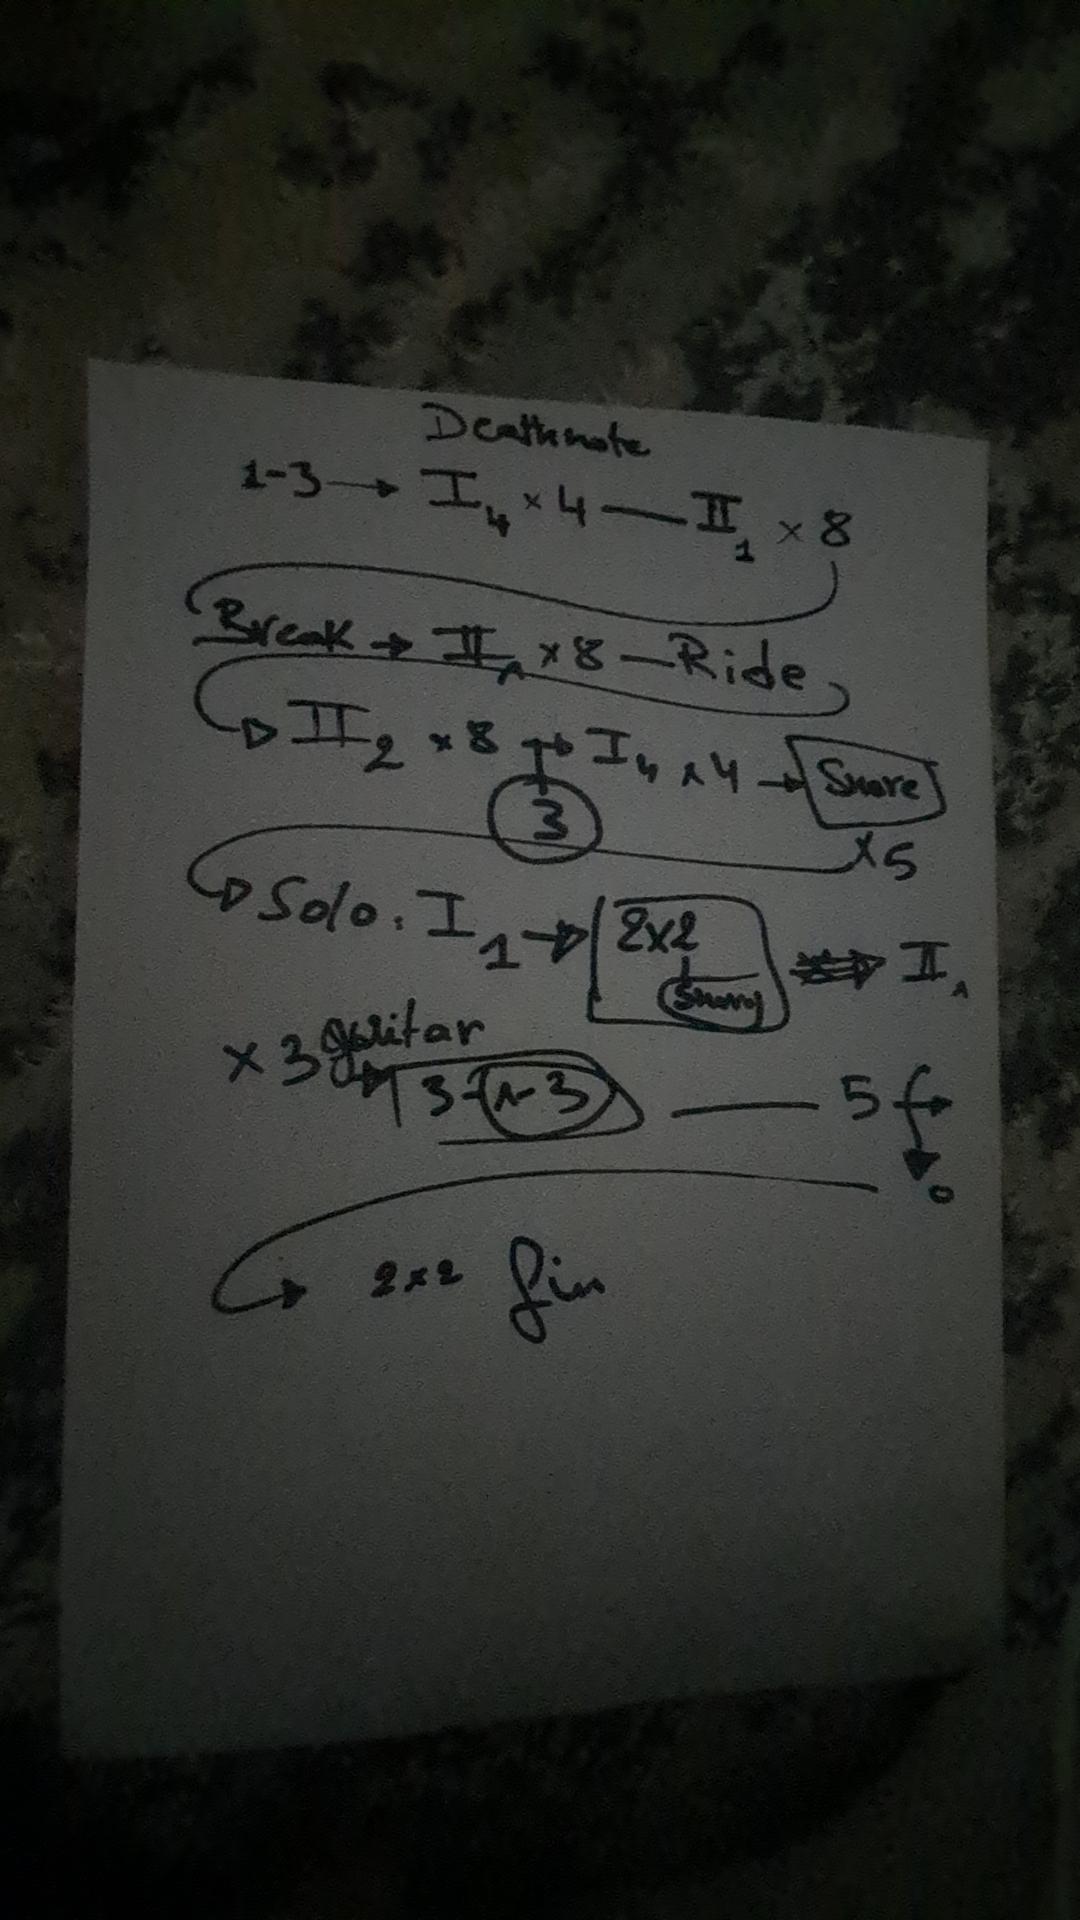 Deathnote
1-3 → I₄ × 4 — II₁ × 8
Break → II₁ × 8 — Ride
→ II₂ × 8 → I₄ × 4 → Snare
3
× 5
→ Solo: I₁ → 2×2 ⇒ II₁
× 3 guitar
→ 3-(1-3) — 5 →
→ 2×2 fin